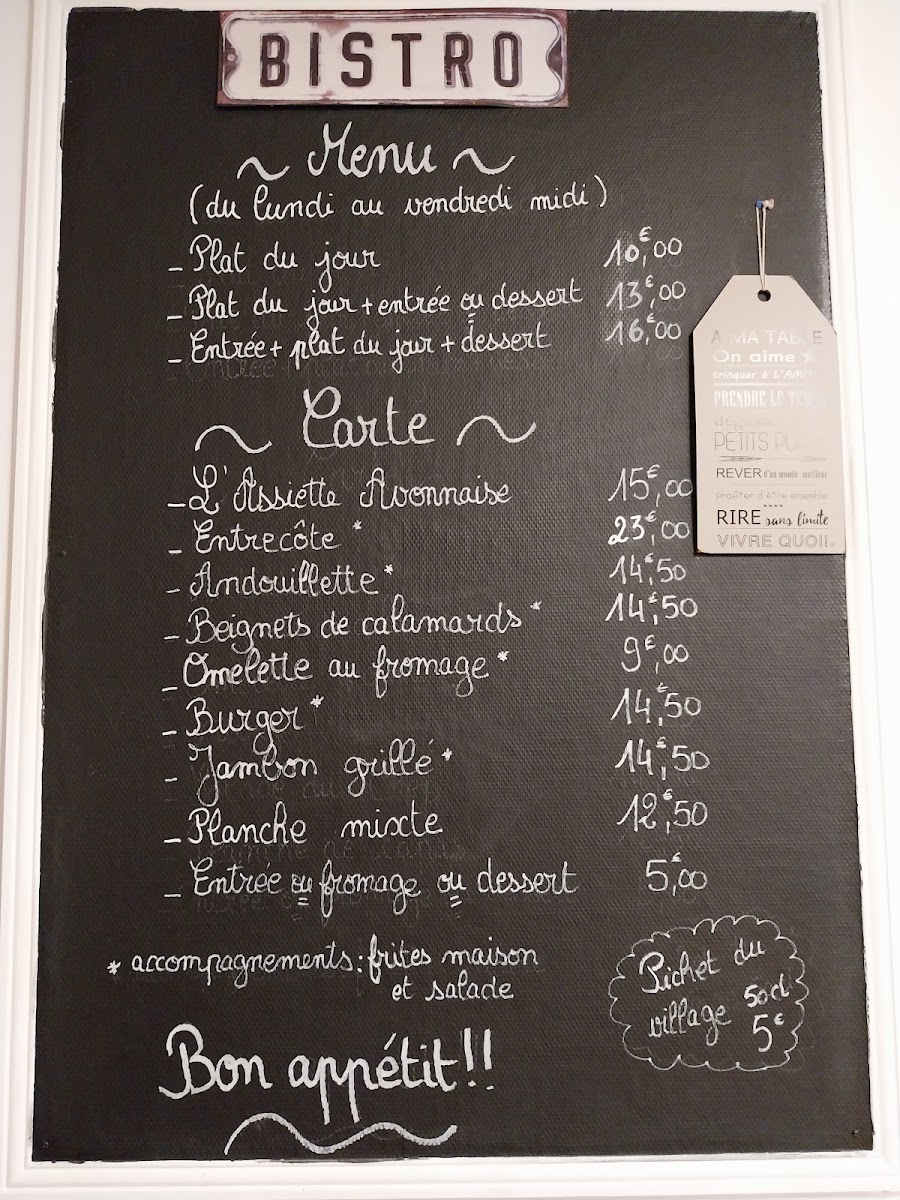 BISTRO
~ Menu ~
(du lundi au vendredi midi)
- Plat du jour 10€,00
- Plat du jour + entrée ou dessert 13€,00
- Entrée + plat du jour + dessert 16€,00
~ Carte ~
- L'Assiette Avonnaise 15€,00
- Entrecôte * 23€,00
- Andouillette * 14€,50
- Beignets de calamards * 14€,50
- Omelette au fromage * 9€,00
- Burger * 14€,50
- Jambon grillé * 14€,50
- Planche mixte 12€,50
- Entrée ou fromage ou dessert 5€,00
* accompagnements : frites maison
et salade
Pichet du
village 50cl
5€
Bon appétit !!
A MA TABLE
On aime
trinquer à L'AMI
PRENDRE LE TEMPS
PETITS
REVER d'un monde meilleur
profiter d'être ensemble
RIRE sans limite
VIVRE QUOI!